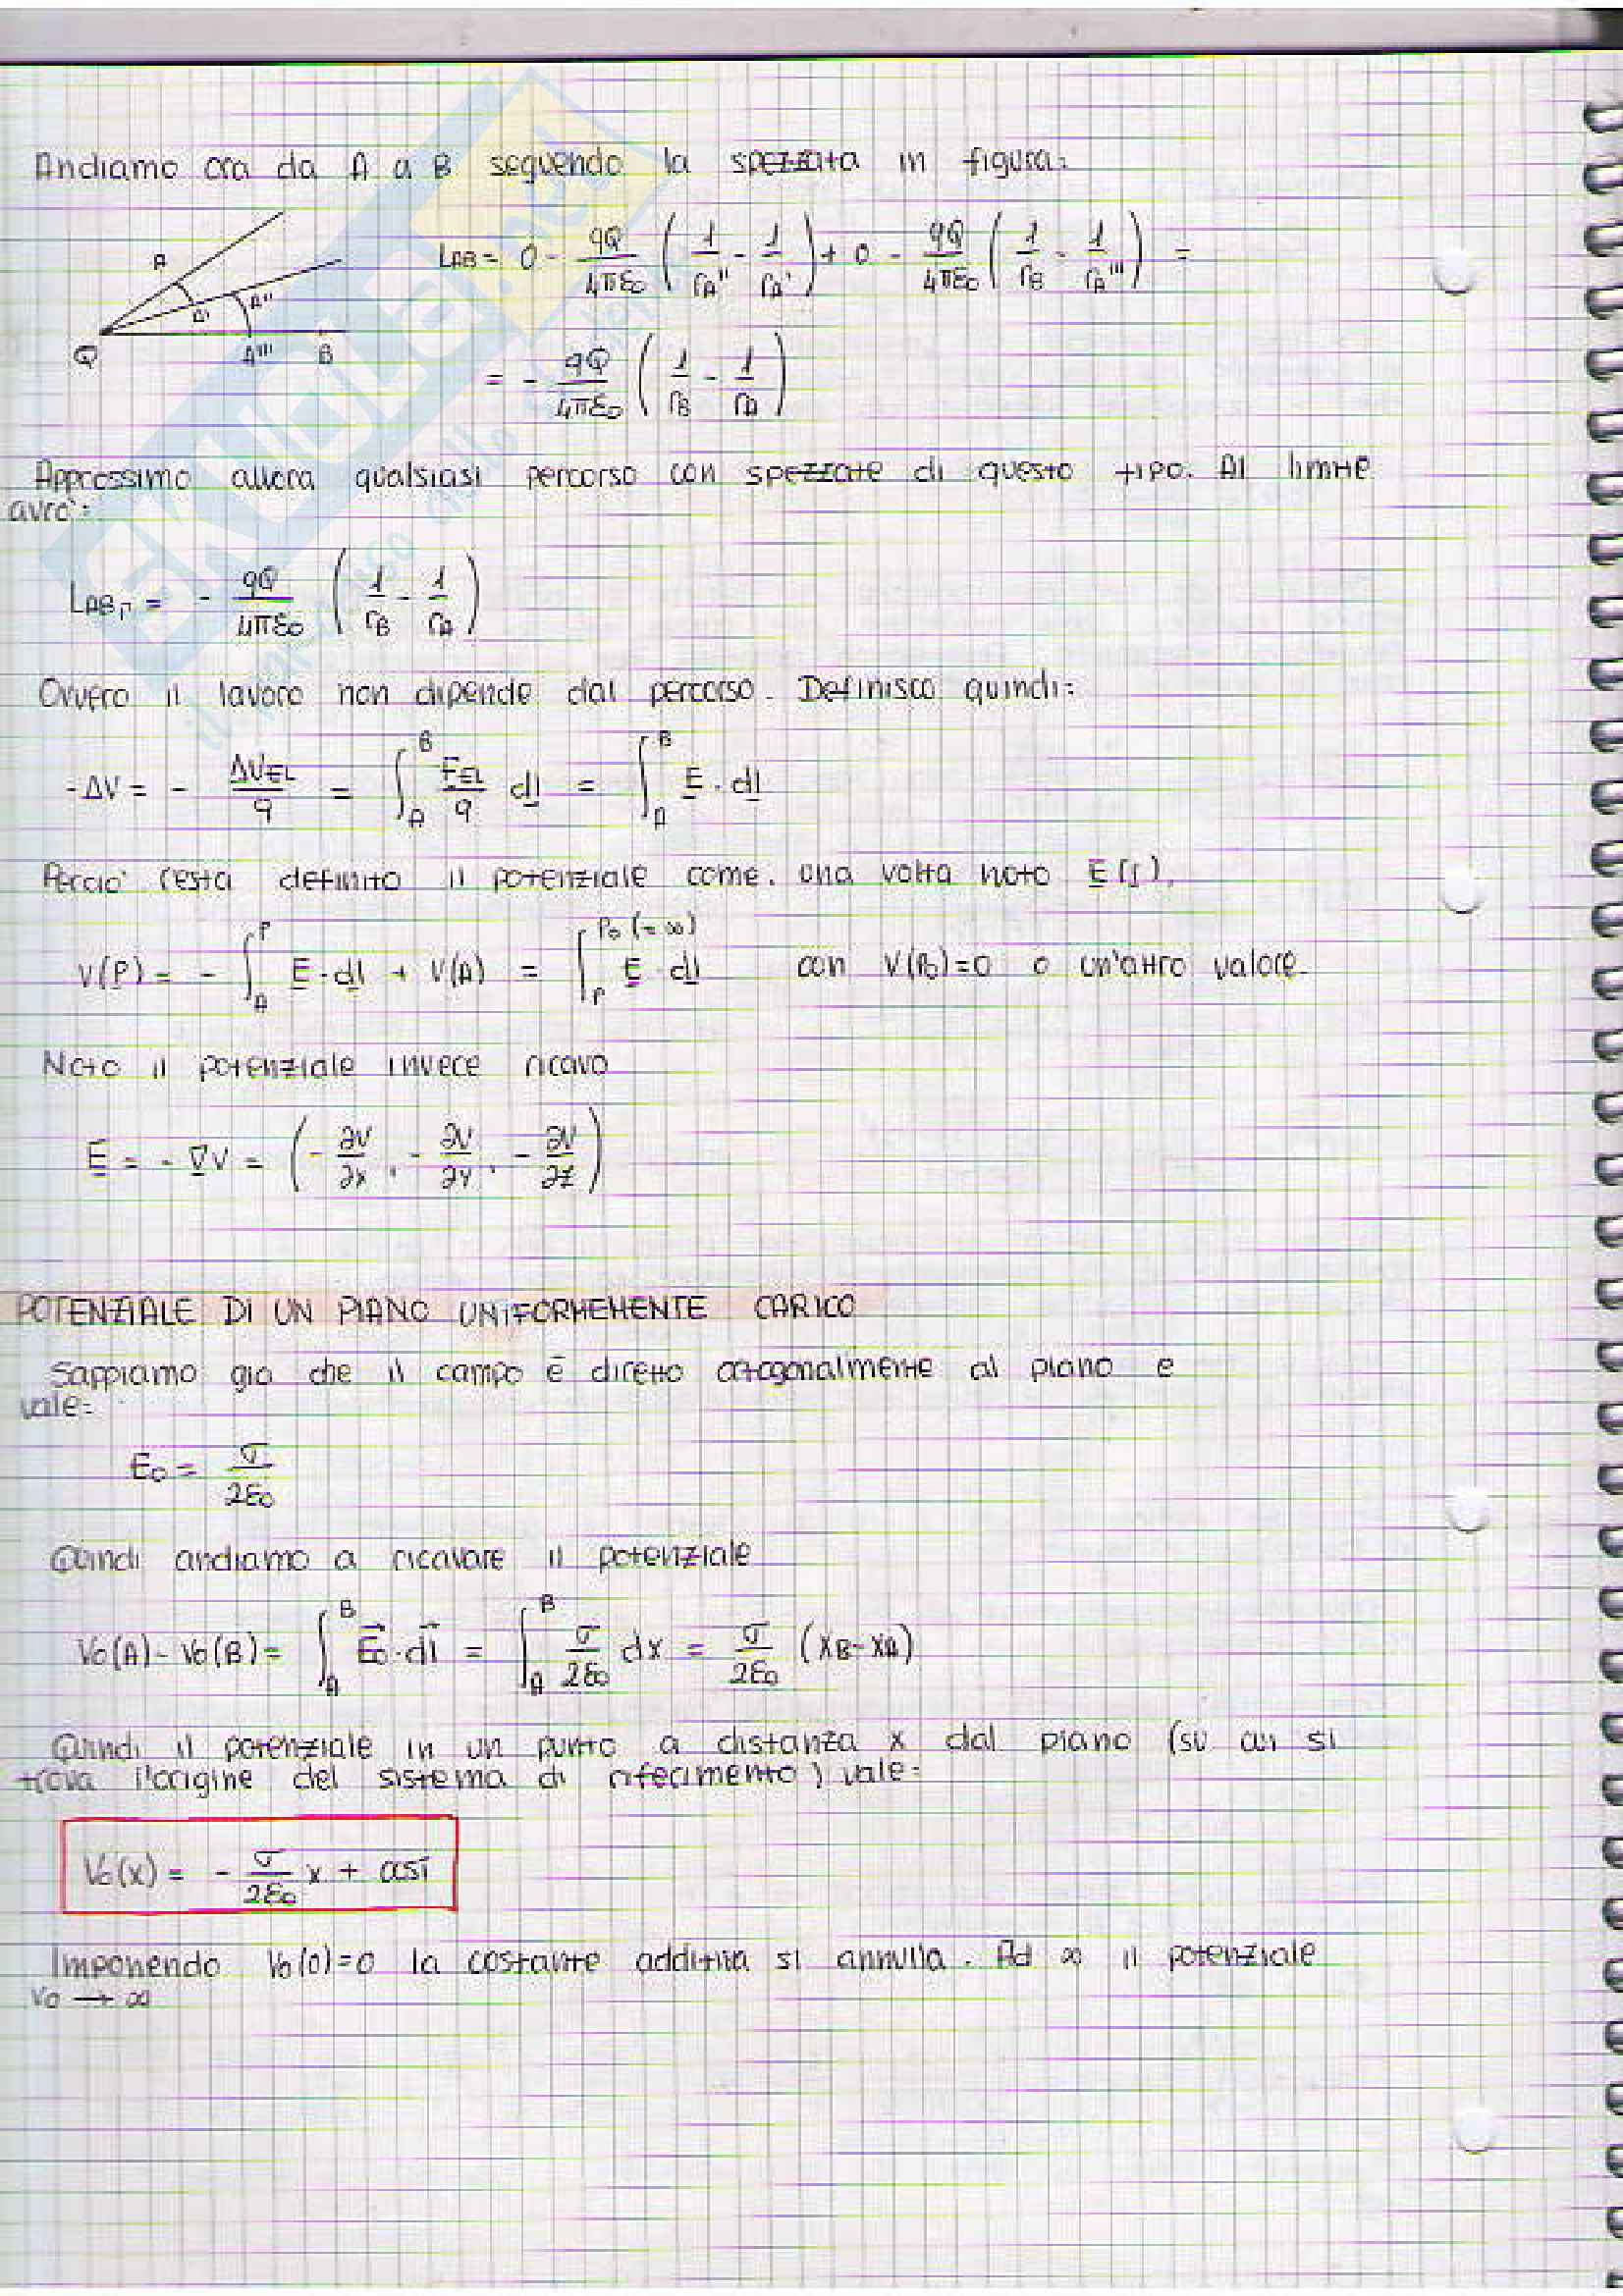 Andiamo ora da A a B seguendo la spezzata in figura:
A
A'
A''
Q
A'''
B
L_AB = 0 - qQ/4πε0 (1/r_A'' - 1/r_A') + 0 - qQ/4πε0 (1/r_B - 1/r_A''') =
= - qQ/4πε0 (1/r_B - 1/r_A)
Approssimo allora qualsiasi percorso con spezzate di questo tipo. Al limite
avro':
L_AB,Γ = - qQ/4πε0 (1/r_B - 1/r_A)
Ovvero il lavoro non dipende dal percorso. Definisco quindi:
-ΔV = - ΔU_EL/q = ∫_A^B F_EL/q dl = ∫_A^B E · dl
Percio' resta definito il potenziale come, una volta noto E(r),
V(P) = - ∫_A^P E · dl + V(A) = ∫_P^P0 (=∞) E · dl con V(P0)=0 o un'altro valore.
Noto il potenziale invece ricavo
E = - ∇V = (- ∂V/∂x, - ∂V/∂y, - ∂V/∂z)
POTENZIALE DI UN PIANO UNIFORMEMENTE CARICO
Sappiamo già che il campo è diretto ortogonalmente al piano e
vale:
E0 = σ/2ε0
Quindi andiamo a ricavare il potenziale
V0(A) - V0(B) = ∫_A^B E0 · dl = ∫_A^B σ/2ε0 dx = σ/2ε0 (xB - xA)
Quindi il potenziale in un punto a distanza x dal piano (su cui si
trova l'origine del sistema di riferimento) vale:
V0(x) = - σ/2ε0 x + cost
Imponendo V0(0)=0 la costante additiva si annulla. Ad ∞ il potenziale
V0 → ∞